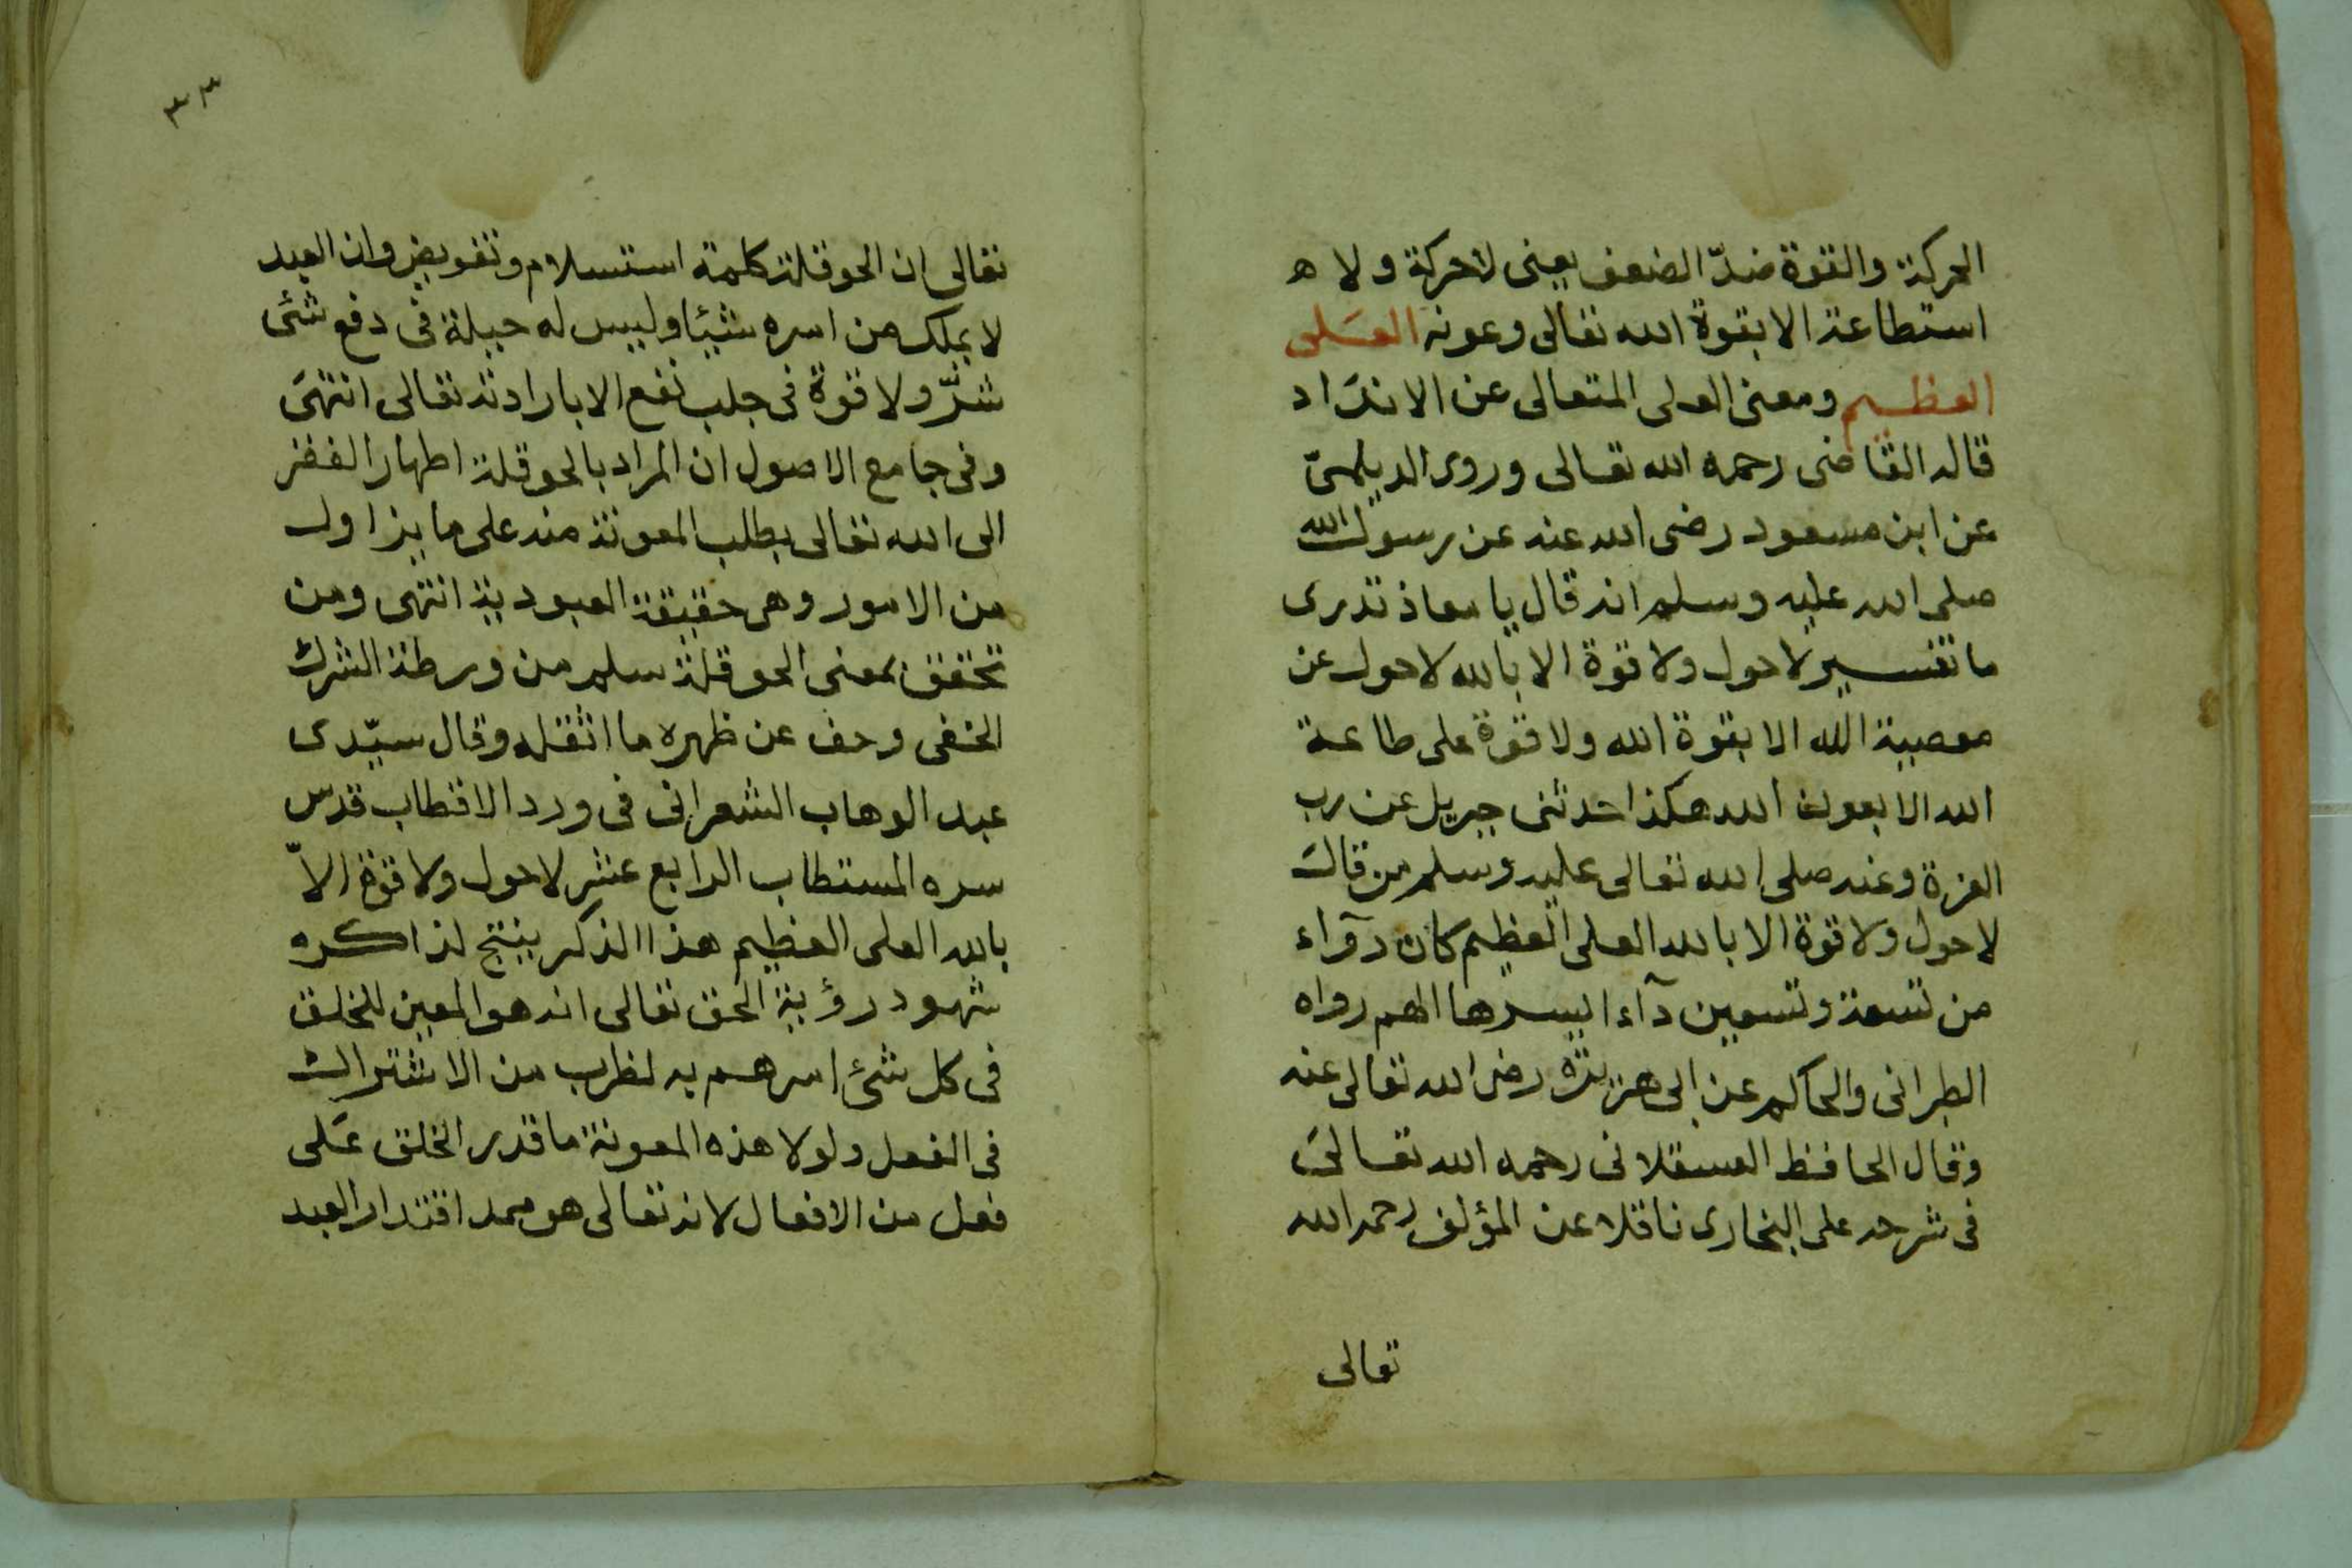 الحركة والقوة ضدّ الضعف يعنى لاحركة ولا ه
استطاعة الا بقوة الله تعالى وعونه العَلى
العظيم ومعنى العلى المتعالى عن الاندَاد
قاله القاضى رحمه الله تعالى وروى الديلمىّ
عن ابن مسعود رضى الله عنه عن رسول الله
صلى الله عليه وسلم انه قال يا معاذ تدرى
ما تفسير لاحول ولا قوة الا بالله لاحول عن
معصية الله الا بقوة الله ولا قوة على طاعة
الله الا بعون الله هكذا حدثنى جبريل عن رب
العزة وعنه صلى الله تعالى عليه وسلم من قال
لاحول ولا قوة الا بالله العلى العظيم كان دوآء
من تسعة وتسعين دآءا ايسرها الهم رواه
الطبرانى والحاكم عن ابى هريرة رضى الله تعالى عنه
وقال الحافظ العسقلانى رحمه الله تعالىَ
فى شرحه على البخارى ناقلا عن المؤلف رحمه الله
تعالى
٣٣
تعالى ان الحوقلة كلمة استسلام وتفويض وان العبد
لا يملك من امره شيئا وليس له حيلة فى دفع شئى
شرّ ولا قوة فى جلب نفع الا بارادته تعالى انتهىَ
وفى جامع الاصول ان المراد بالحوقلة اظهار الفقر
الى الله تعالى بطلب المعونة منه على ما يزاول
من الامور وهى حقيقة العبودية انتهى ومن
تحقق بمعنى الحوقلة سلم من ورطة الشرك
الخفى وخف عن ظهره ما اثقله وقال سيّدى
عبد الوهاب الشعرانى فى ورد الاقطاب قدس
سره المستطاب الرابع عشر لاحول ولا قوة الاّ
بالله العلى العظيم هذا الذكر ينتج لذاكره
شهود رؤية الحق تعالى انه هو المعين للخلق
فى كل شئ امرهم به لضرب من الاشتراك
فى الفعل ولولا هذه المعونة ما قدر الخلق عَلى
فعل من الافعال لانه تعالى هو ممد اقتدار العبد